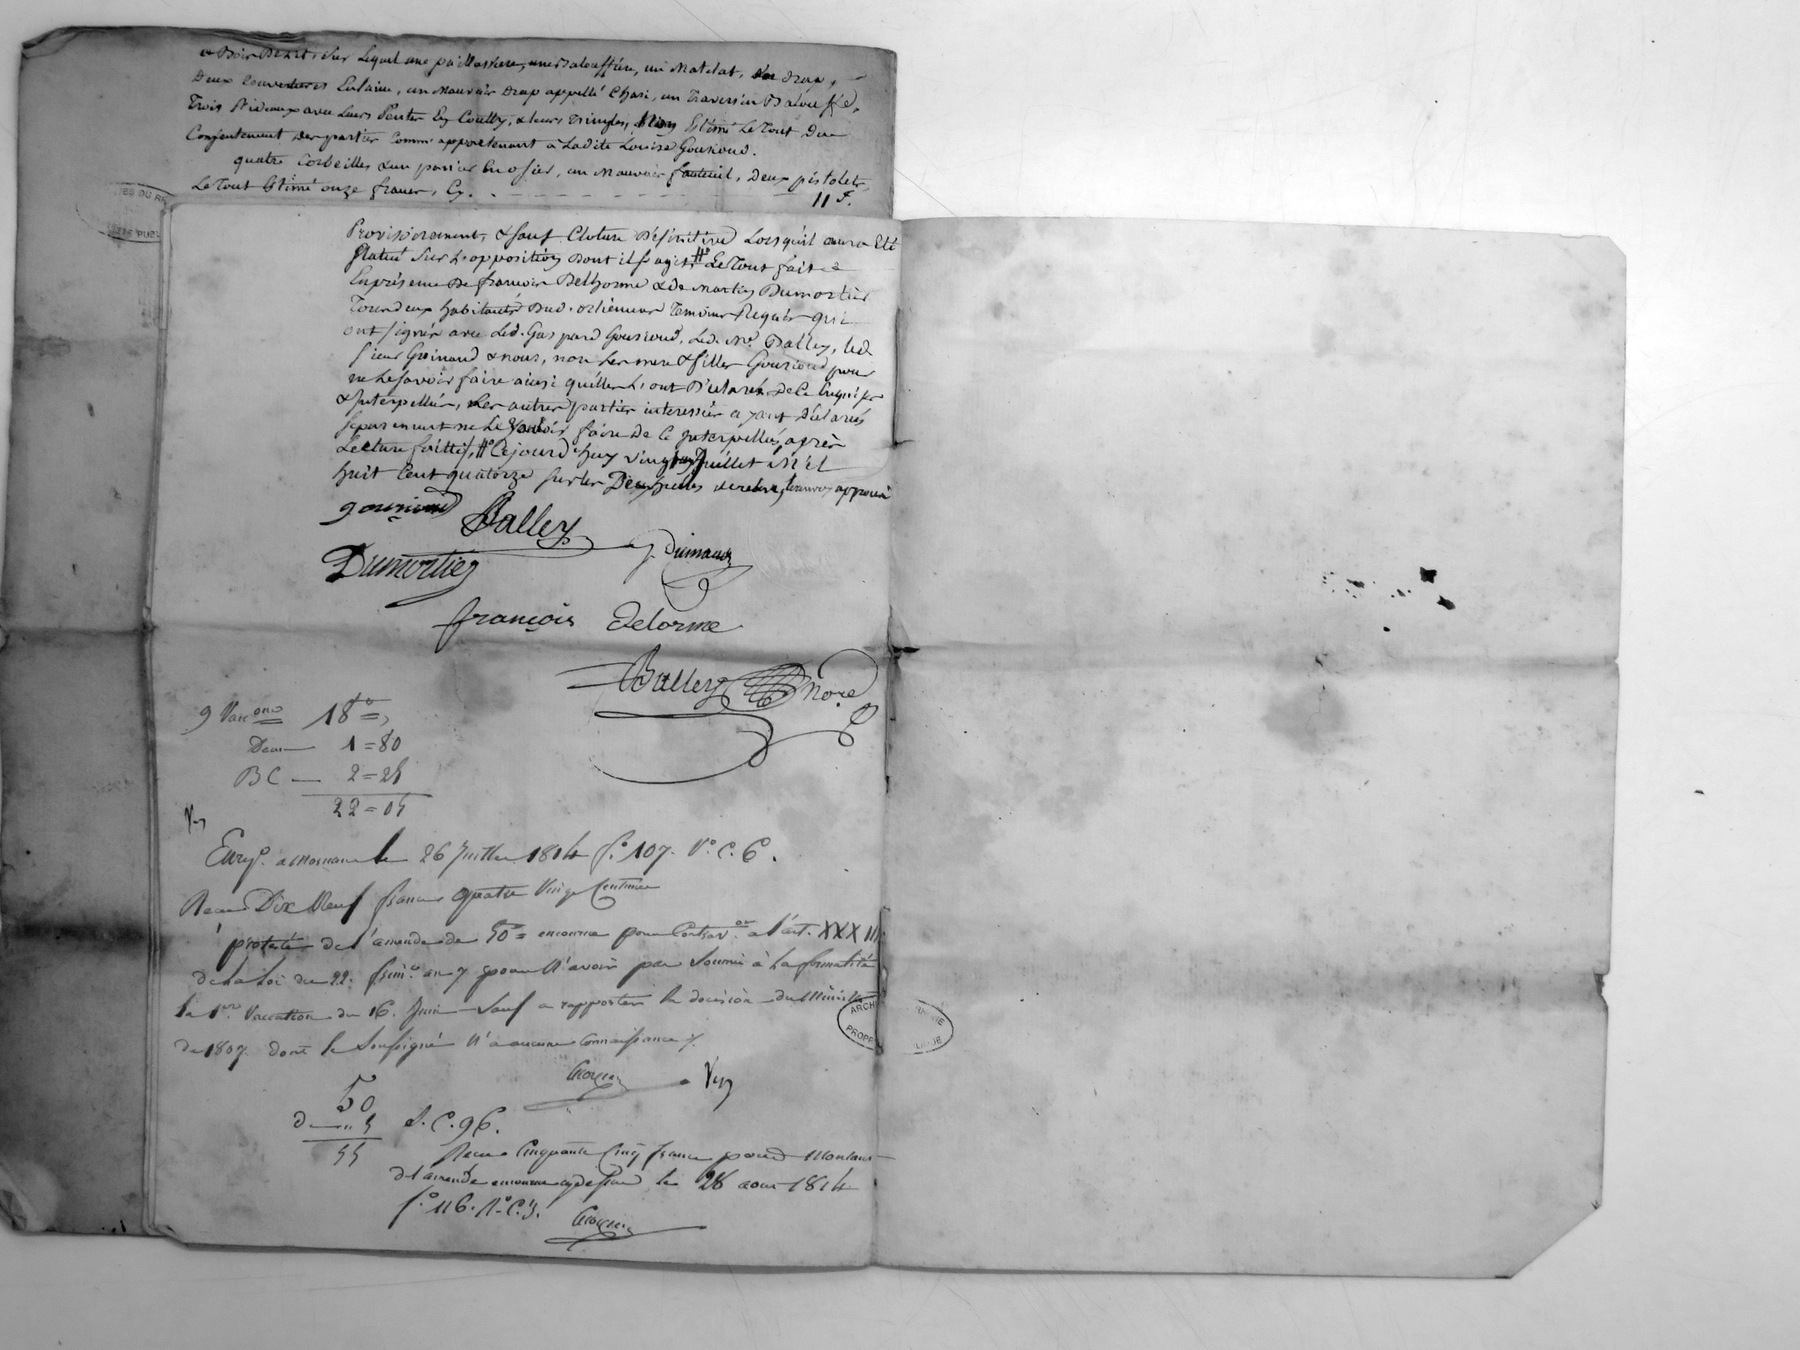 Deux couvertures Enlaine, un Mauvais Drap appellé Chari, un Traversin
Trois Rideaux avec Leurs Pentes En Coutty, & leurs Tringles, Non Estimé Le Tout Du
Consentement des parties comme appartenant a Ladite Louise Gourioud.
quatre Corbeilles & un panier En osier, un Mauvais fauteuil, Deux pistolets,
Le Tout Estimé onze francs, Cy. 11 f.
Provisoirement, & sauf Cloture Definitive Lorsqu'il aura Eté
Statué Sur L'opposition Dont il s'agit # Le Tout fait
En présence De françois Delhorme & de Martin Dumortier
Tous deux habitants Dud. Temoins Requis qui
ont signés avec Led. Gaspard Gourioud, Led. Me. Balley, led.
sieur & nous, non Les mere & filles Gourioud pour
ne Le savoir faire ainsi qu'elles L'ont Déclaré De Ce Enquises
& Interpellées, Les autres parties interessées ayant Déclarés
Separement ne Le Vouloir faire De Ce Interpellés, après
Lecture faitte, # Cejourd'huy vingt Juillet Mil
huit Cent quatorze sur les
gourioud Balley
Dumortier
françois Delorme
Balley Nore
9 Vacons 18 =,
Deme 1 = 80
BC — 2 = 25
22 = 05
Vu
Enrgé. a Mornant le 26 Juillet 1814 fo. 107. Vo. C. 6.
Recu Dix Neuf francs quatre Vingt Centimes
protesté de l'amende de 50 = encourue pour Contravon. a l'art. XXXIII
de la Loi du 22. frim. an 7 pour N'avoir pas Soumis à La formalité
la 1re. Vaccation du 16. Juin Sauf a rapporter la décision du Ministre
de 1807. dont le Soussigné N'a aucune Connaissance
Vu
50
d — 5
55
S. C. 96.
Recu Cinquante Cinq francs pour Montant
de l'amende encourue cydessus le 28 aout 1814
fo. 116. Ro. C. 3.
ARCH
PROP